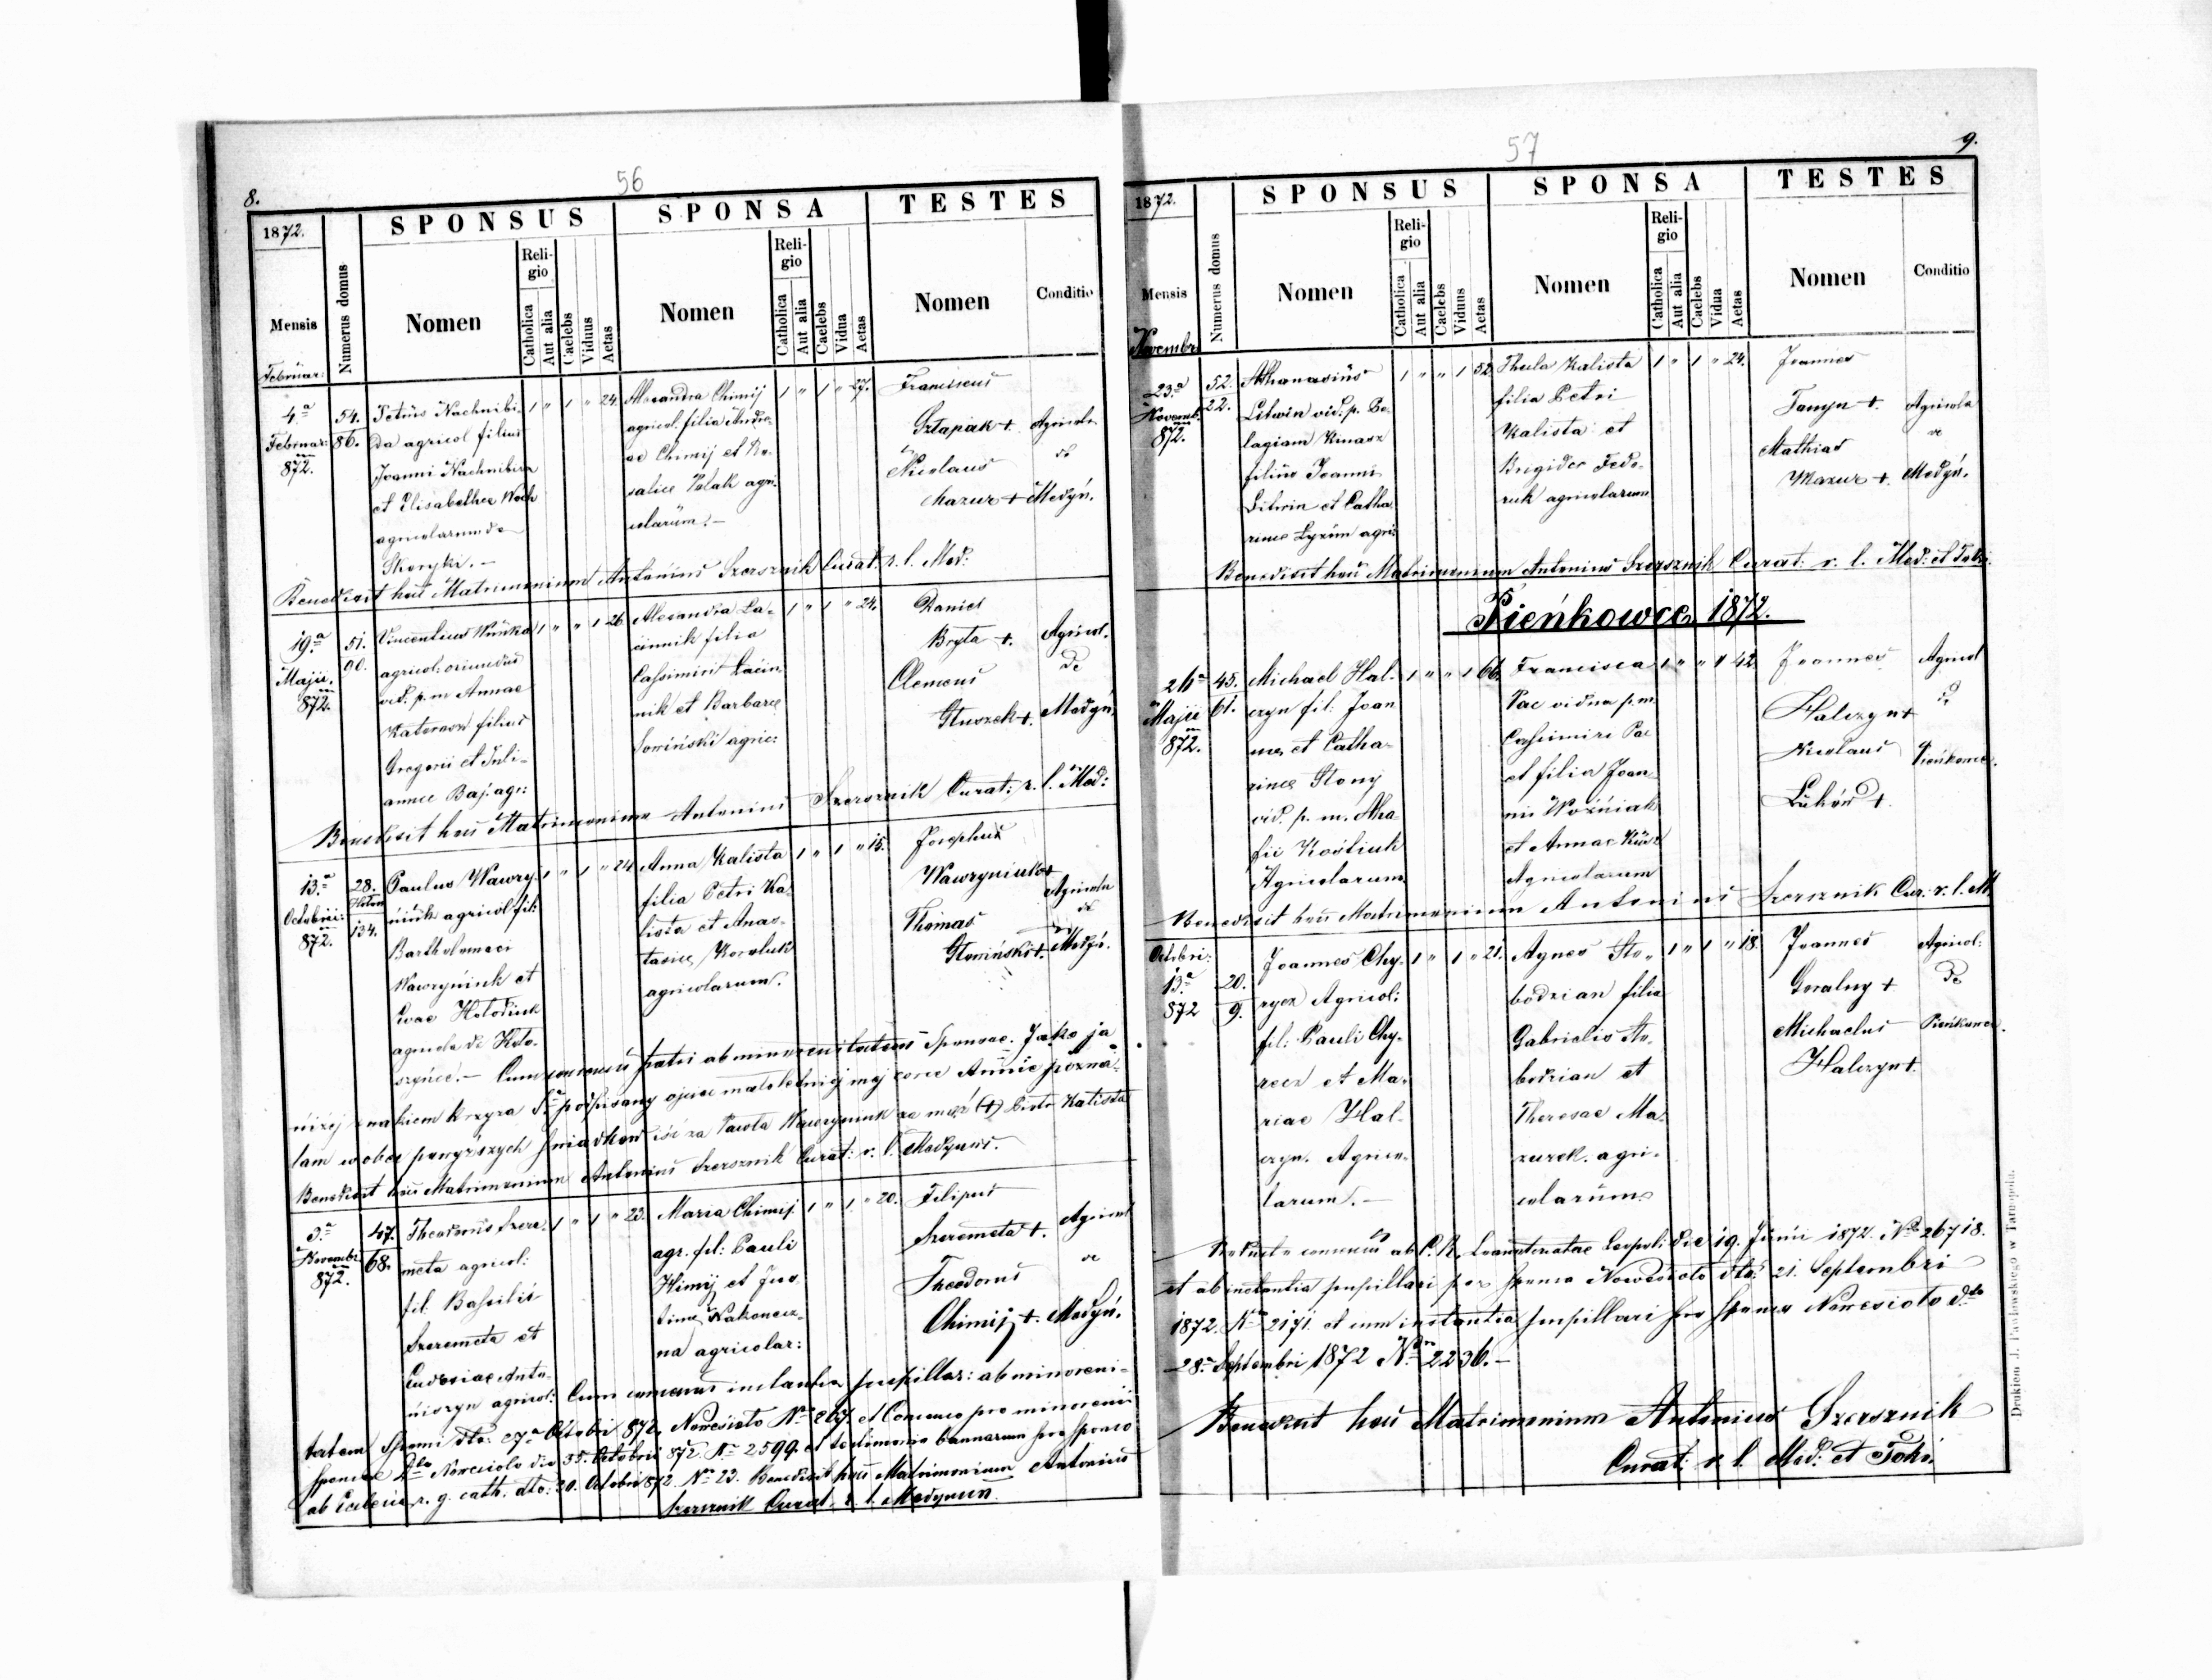 56
8.
1872.
SPONSUS
SPONSA
TESTES
Mensis
Numerus domus
Nomen
Religio
Catholica
Aut alia
Caelebs
Viduus
Aetas
Nomen
Religio
Catholica
Aut alia
Caelebs
Vidua
Aetas
Nomen
Conditio
Februar:
4ª
Februar:
872.
54.
86.
Petrus Nachnibi-
da agricol filius
Joanni Nachnibida
et Elisabethae
agricolarum de
Skoryki. -
1 " 1 " 24
Alexandra Chimij
agricol. filia Andre-
ae Chimij et Ro-
saliae Polak agri-
colarum. -
1 " 1 " 27.
Franciscus
Sztapak +.
Nicolaus
Mazur +
Agricola
de
Medyń.
Benedixit hoc Matrimonium Antonius Szersznik Curat: r. l. Med:
19ª
Maji.
872.
51.
90.
Vincentius
agricol: oriundus
vid. p. m Annae
filius
Gregorii et Juli-
annae Baj agr:
1 " " 1 26
Alexandra La-
cinnik filia
Cassimiri Lacin-
nik et Barbarae
Sowiński agric:
1 " 1 " 24.
Daniel
Bryta +.
Clemens
Głuszek +.
Agricol.
de
Medyń.
Benedixit hoc Matrimonium Antonius Szersznik Curat: r. l. Med:
13ª
Octobrii:
872.
28.
134.
Paulus Wawry-
niuk agricol fil:
Bartholomaei
Wawryniuk et
Evae Hołodiuk
agricola de Hoło-
szyńce. -
1 " 1 " 24
Anna Kalista
filia Petri Ka-
lista et Anas-
tasiae Koroluk
agricolarum.
1 " 1 " 15.
Josephus
Wawryniuk +
Thomas
Słowiński +.
Agricola
de
Medyń.
Cum consensu patri ab minorenitatem Sponsae. Jako ja
niżej znakiem krzyża Sº podpisany ojciec małoletniej mej córce Annie pozwa-
lam wobec powyższych świadków iść za Pawła Wawryniuk za mąż (+) Piotr Kalista
Benedixit hoc Matrimonium Antonius Szersznik Curat: r. l. Medynens.
3ª
Novembr.
872.
47.
68.
Theodorus Szere-
meta agricol:
fil: Bassilii
Szeremeta et
Eudoxiae Anto-
niszyn agricol:
1 " 1 " 23.
Maria Chimij
agr. fil: Pauli
Himij et Jus-
tinae Nakonecz-
na agricolar:
1 " 1 " 20.
Filipus
Szeremeta +.
Theodorus
Chimij +.
Agricol
de
Medyń.
Cum consensu instantia pupillar: ab minoreni-
tatem Sponsi dto: 27ª Octobri 872. Nowesioło Nº 267. et Consensus pro minorenni
sponsae Dto Nowesioło die 35. Octobrii 872 Nº 2599. et testimonio bannarum pro sponso
ab Ecclesia r. g. cath. dto: 20. Octobri 872. Nº 23. Benedixit hoc Matrimonium Antonius
Szersznik Curat. r. l. Medynen
57
9.
1872.
SPONSUS
SPONSA
TESTES
Mensis
Numerus domus
Nomen
Religio
Catholica
Aut alia
Caelebs
Viduus
Aetas
Nomen
Religio
Catholica
Aut alia
Caelebs
Vidua
Aetas
Nomen
Conditio
Novembr
23ª
Novemb.
872.
52.
22.
Athanasius
Litwin vid. p. Pe-
lagiam Kmasz
filius Joanni
Litwin et Catha-
rinae Łyzun agri:
1 " " 1 52
Thecla Kalista
filia Petri
Kalista et
Brigidae Fedo-
ruk agricolarum
1 " 1 " 24.
Joannes
Tanyn +.
Mathias
Mazur +.
Agricola
de
Medyń.
Benedixit hoc Matrimonium Antonius Szersznik Curat: r. l. Med: et Toki.
Pieńkowce 1872.
26ª
Maji
872.
45.
61.
Michael Hal-
czyn fil: Joan
nes et Catha-
rinae Słony
vid. p. m. Aha
fii Kośtiuk
Agricolarum.
1 " " 1 66.
Francisca
Pac vidua p. m.
Cassimiri Pac
et filia Joan-
ni Woźniak
et Annae
Agricolarum
1 " " 1 42
Joannes
Halczyn +
Nicolaus
Łuków +.
Agricol
de
Pieńkowce.
Benedixit hoc Matrimonium Antonius Szersznik Cur: r. l. M
Octobri:
13ª
872
20.
9.
Joannes Chy-
rycz Agricol:
fil: Pauli Chy-
recz et Ma-
riae Hal-
czyn. Agrico-
larum. -
1 " 1 " 21.
Agnes Sło-
bodzian filia
Gabrielis Sło-
bodzian et
Theresae Ma-
zurek. agri-
colarum.
1 " 1 " 18.
Joannes
Goralny +
Michaelus
Halczyn +.
Agricol:
de
Pieńkowce.
consensus ab C. R. Locumtenentiae Leopoli die 19. Junii 1872. Nº 26718.
et ab instantia pupillari pro sponso Nowesioło dto: 21. Septembri
1872. Nº 2171. et cum instantia pupillari pro sponsa Nowesioło dto
28. Septembri 1872 Nº 2236. -
Benedixit hoc Matrimonium Antonius Szersznik
Curat: r. l. Med: et Toki.
Drukiem J. Pawłowskiego w Tarnopolu.